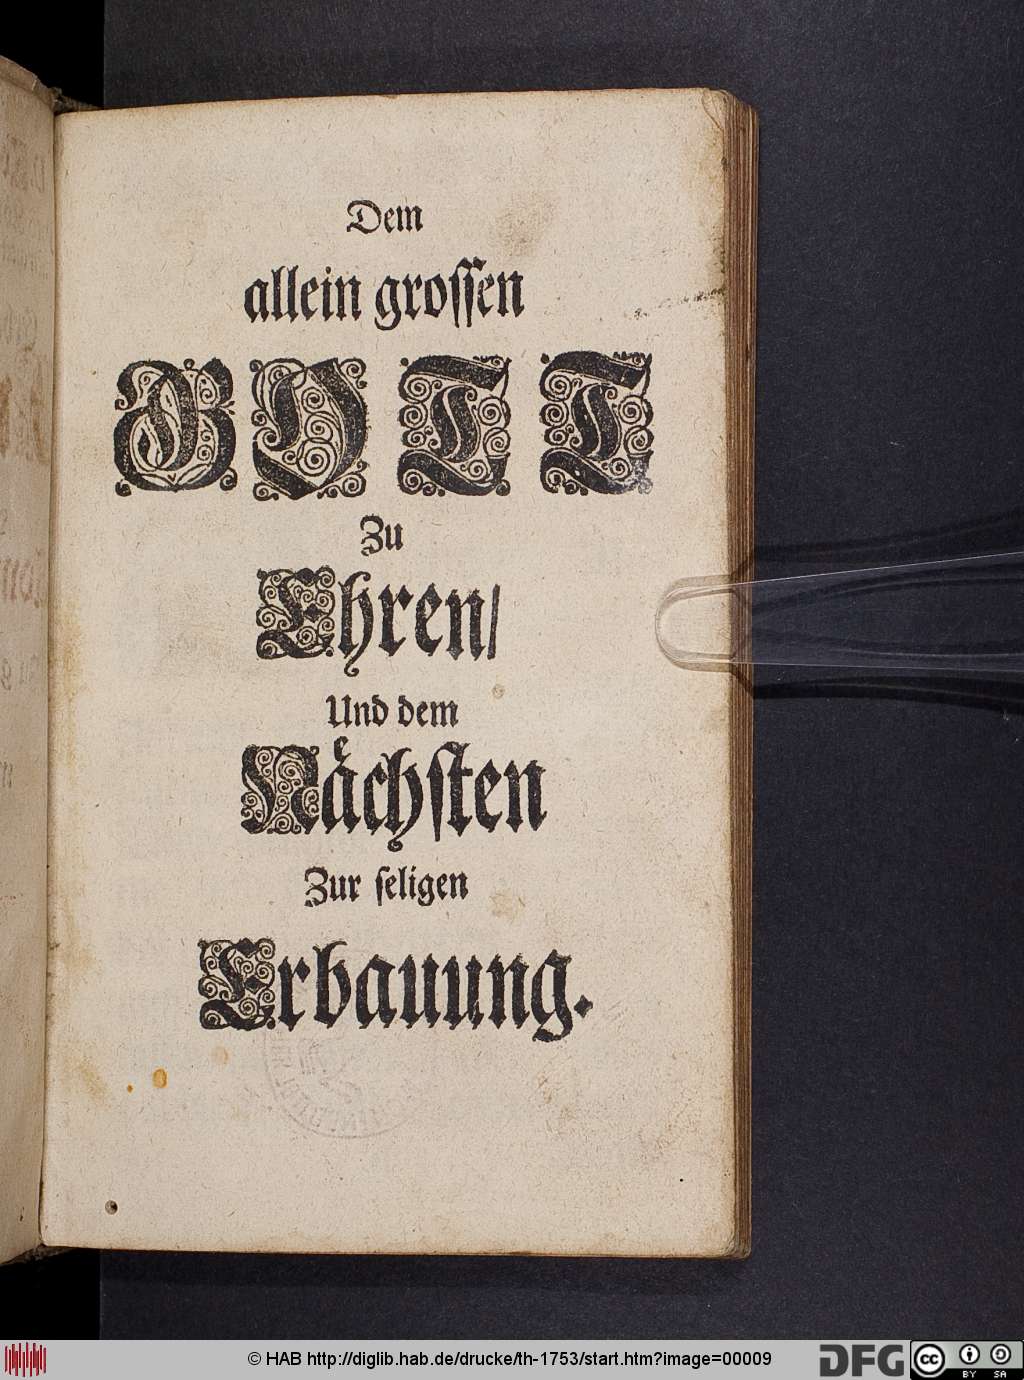 Dem
allein groſſen
GOTT
Zu
Ehren/
Und dem
Naͤchſten
Zur ſeligen
Erbauung.
© HAB http://diglib.hab.de/drucke/th-1753/start.htm?image=00009
DFG
cc
BY SA